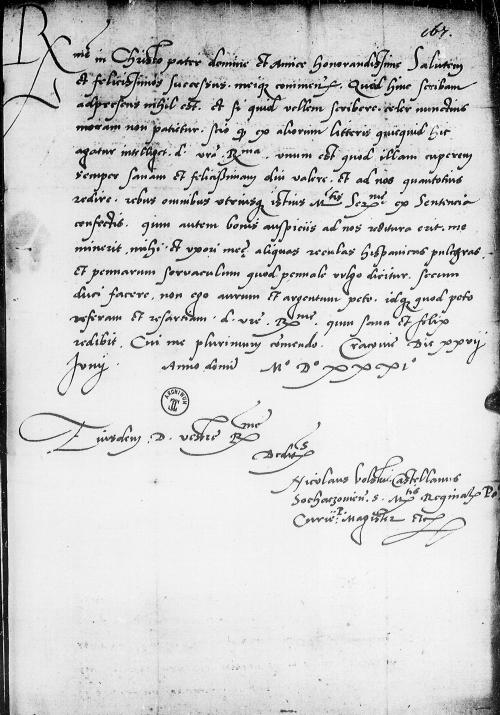 167.
Rme in Christo pater domine et Amice honorandissime Salutem
et felicissimos successus. meiqz commen. Quod hinc scribam
adpraesens nihil est. et si quid vellem scribere. celer nunctius
moram non patietur. scio q ex aliorum litteris quicquid hic
agatur intelliget. d. vra. Rma. unum est quod illam cuperem
semper sanam et felicissimam diu valere. et ad nos quantotius
redire. rebus omnibus utriusqz istius Mtis Serme ex Sentencia
confectis. quum autem bonis auspiciis ad nos reditura erit. me
minerit mihi et uxori meę aliquas reculas hispanicas pulchras.
et pennarum servaculum quod pennale vulgo dicitur. secum
duci facere. non ego aurum et argentum peto. idqz quod peto
referam et resarciam. d. vre. Rme. quum sana et felix
redibit. Cui me plurimum comendo. Cracovie Die xxvij
Junij. Anno domini Mo Do xxxio
Eiusdem. D. vestre Rme
Deditss
Nicolaus Volski Castellanus
Sochaczovien. s. Mtis Reginalis Po
Curie. Magister etc